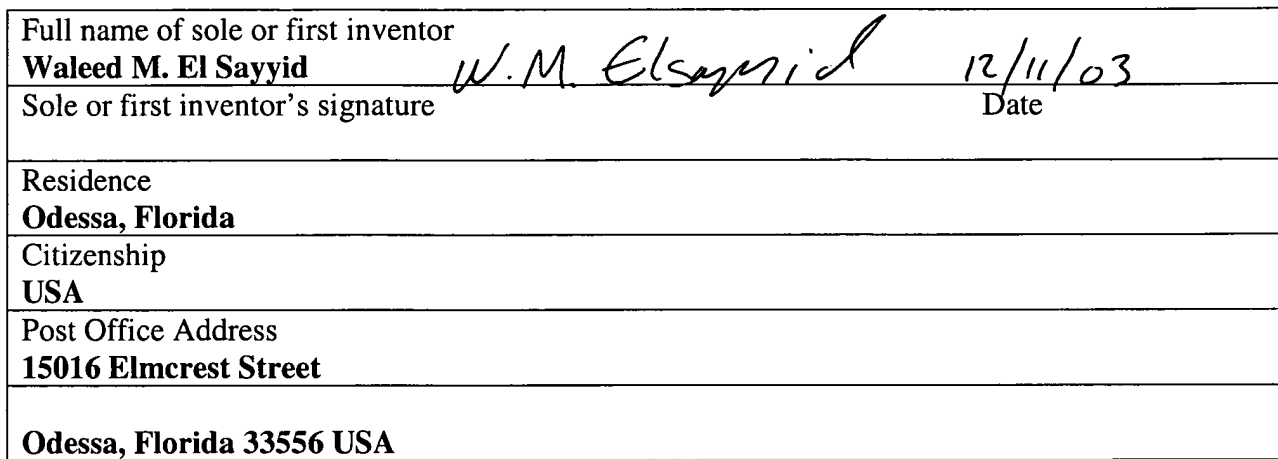 Full name of sole or first inventor
Waleed M. El Sayyid W.M. Elsayyid 12/11/03
Sole or first inventor's signature Date
Residence
Odessa, Florida
Citizenship
USA
Post Office Address
15016 Elmcrest Street
Odessa, Florida 33556 USA